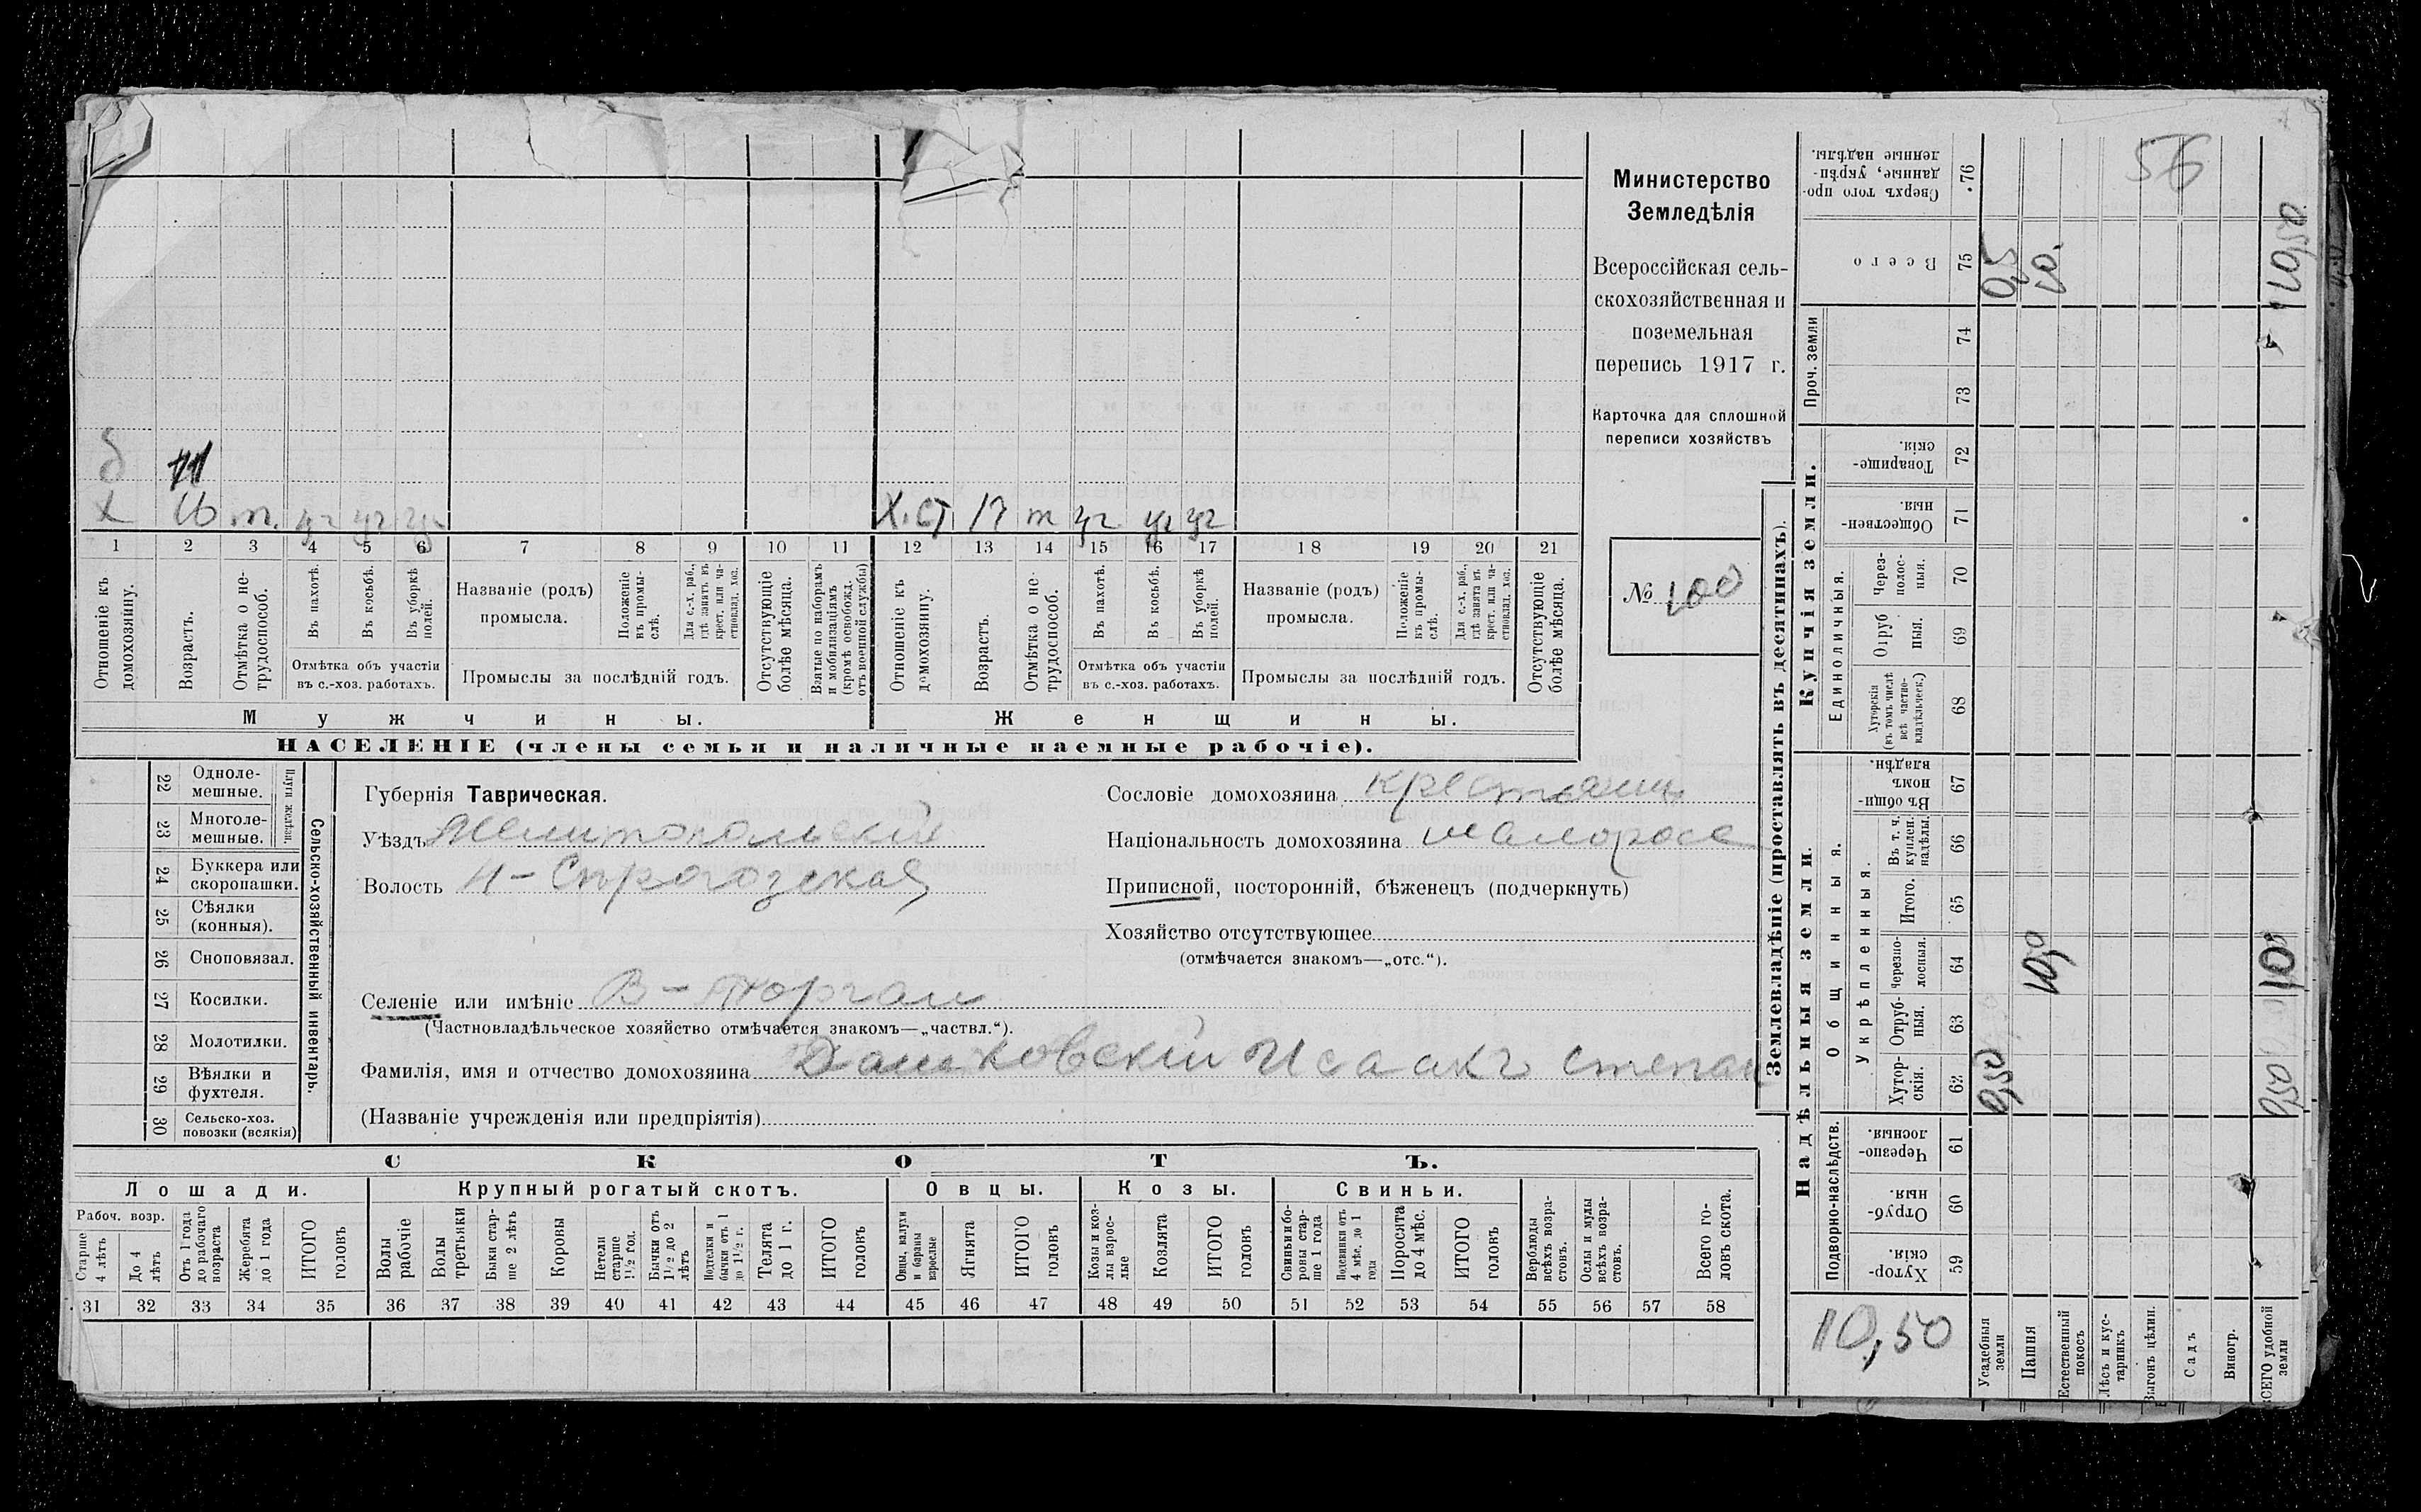 56
Министерство
Земледѣлія
Всероссійская сель-
скохозяйственная и
поземельная
перепись 1917 г.
Карточка для сплошной
переписи хозяйствъ
№ 100
б 11
х 16 т. уч уч уч
Х.СТ 17 т уч уч уч
1 2 3 4 5 6 7 8 9 10 11 12 13 14 15 16 17 18 19 20 21
Отношеніе къ домохозяину.
Возрастъ.
Отмѣтка о не-трудоспособ.
Въ пахотѣ.
Въ косьбѣ.
Въ уборкѣ полей.
Отмѣтка объ участіи
въ с.-хоз. работахъ.
Названіе (родъ)
промысла.
Положеніе въ промы-слѣ.
Для с.-х. раб., гдѣ занятъ въ крест. или ча-стновлад. хоз.
Промыслы за послѣдній годъ.
Отсутствующіе болѣе мѣсяца.
Взятые по наборамъ и мобилизаціямъ (кромѣ освобожд. отъ военной службы)
Отношеніе къ домохозяину.
Возрастъ.
Отмѣтка о не-трудоспособ.
Въ пахотѣ.
Въ косьбѣ.
Въ уборкѣ полей.
Отмѣтка объ участіи
въ с.-хоз. работахъ.
Названіе (родъ)
промысла.
Положеніе въ промы-слѣ.
Для с.-х. раб., гдѣ занята въ крест. или ча-стновлад. хоз.
Промыслы за послѣдній годъ.
Отсутствующіе болѣе мѣсяца.
Мужчины.
Женщины.
НАСЕЛЕНІЕ (члены семьи и наличные наемные рабочіе).
Сельско-хозяйственный инвентарь.
Плуги желѣзн.
22 Одноле-мешные.
23 Многоле-мешные.
24 Буккера или скоропашки.
25 Сѣялки (конныя).
26 Сноповязал.
27 Косилки.
28 Молотилки.
29 Вѣялки и фухтеля.
30 Сельско-хоз. повозки (всякія)
Губернія Таврическая.
Уѣздъ Мелитопольскій
Волость Н-Сѣрогозская
Селеніе или имѣніе В-Торгаи
(Частновладѣльческое хозяйство отмѣчается знакомъ—„частвл.“).
Фамилія, имя и отчество домохозяина Дашковскій Исаакъ Степан
(Названіе учрежденія или предпріятія)
Сословіе домохозяина крестьянинъ
Національность домохозяина малоросс
Приписной, посторонній, бѣженецъ (подчеркнуть)
Хозяйство отсутствующее
(отмѣчается знакомъ—„отс.“).
СКОТЪ.
Лошади. Крупный рогатый скотъ. Овцы. Козы. Свиньи.
Рабоч. возр.
Старше 4 лѣтъ
До 4 лѣтъ
Отъ 1 года до рабочаго возраста
Жеребята до 1 года
ИТОГО головъ
Волы рабочіе
Волы третьяки
Быки стар-ше 2 лѣтъ
Коровы
Нетели старше 1½ год.
Бычки отъ 1½ до 2 лѣтъ
Подтелки и бычки отъ 1 до 1½ г.
Телята до 1 г.
ИТОГО головъ
Овцы, валухи и бараны взрослые
Ягнята
ИТОГО головъ
Козы и коз-лы взрос-лые
Козлята
ИТОГО головъ
Свиньи и бо-ровы стар-ше 1 года
Подсвинки отъ 4 мѣс. до 1 года
Поросята до 4 мѣс.
ИТОГО головъ
Верблюды всѣхъ возра-стовъ.
Ослы и мулы всѣхъ возра-стовъ.
Всего го-ловъ скота.
31 32 33 34 35 36 37 38 39 40 41 42 43 44 45 46 47 48 49 50 51 52 53 54 55 56 57 58
Землевладѣніе (проставлять въ десятинахъ).
Надѣльныя земли.
Купчія земли.
Проч. земли
Подворно-наслѣдств.
Общинныя.
Укрѣпленныя.
Единоличныя.
Хутор-скія. 59
Отруб-ныя. 60
Черезпо-лосныя. 61
Хутор-скія. 62
Отруб-ныя. 63
Черезпо-лосныя. 64
Итого. 65
Въ т. ч. куплен. надѣлы. 66
Въ общи-номъ владѣн. 67
Хуторскія (въ томъ числѣ всѣ частно-владѣльческ.) 68
Отруб ныя. 69
Через-полос-ныя. 70
Обществен-ныя. 71
Товарище-скія. 72
73
74
Всего 75
Сверхъ того про-данные, укрѣп-ленные надѣлы. 76
10,50
Усадебныя земли 0,50 0,5
Пашня 10,0 10.
Естественный покосъ
Лѣсъ и кус-тарникъ
Выгонъ цѣлин.
Садъ
Виногр.
ВСЕГО удобной земли 0,50 10,0 10,50